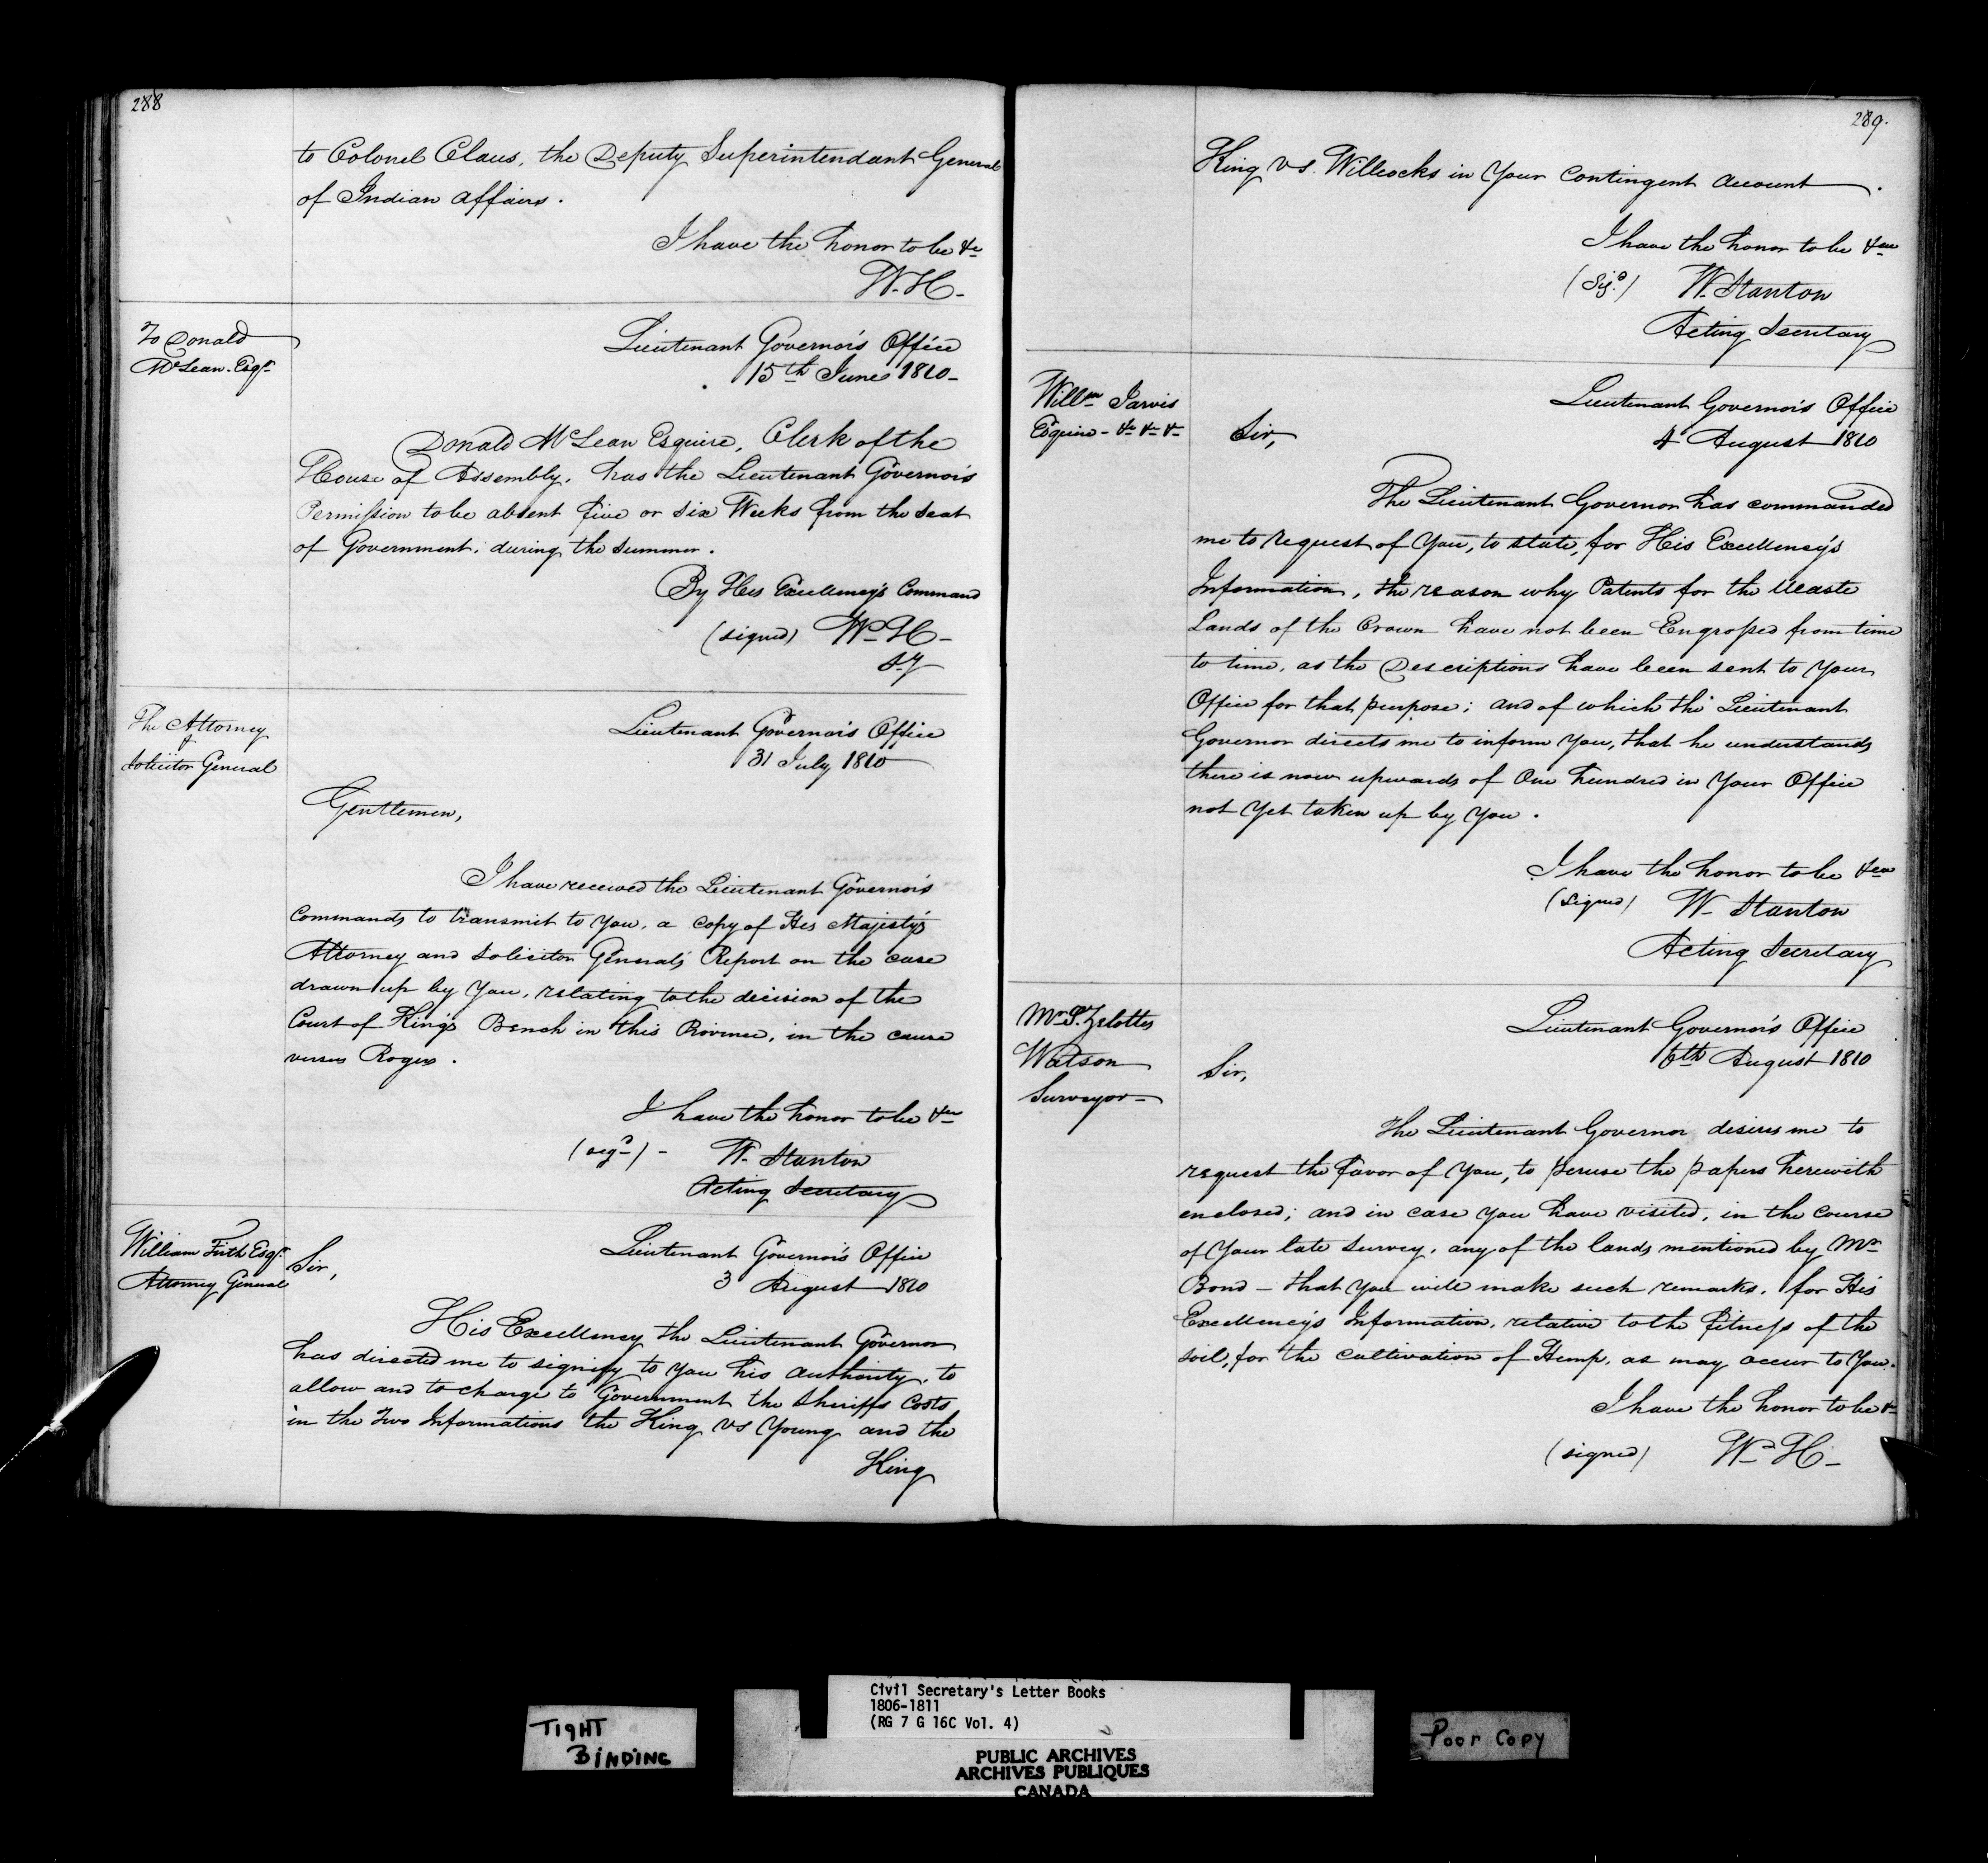 288
to Colonel Claus, the Deputy Superintendant General
of Indian Affairs.
I have the honor to be &c
W. H-
To Donald
McLean. Esqr
Lieutenant Governor's Office
15th June 1810-
Donald McLean Esquire, Clerk of the
House of Assembly, has the Lieutenant Governor's
Permission to be absent five or six Weeks from the Seat
of Government, during the Summer.
By His Excellency's Command
(signed) Wm H-
The Attorney
&
Solicitor General
Lieutenant Governor's Office
31 July 1810
Gentlemen,
I have received the Lieutenant Governor's
Commands to transmit to You, a copy of His Majesty's
Attorney and Solicitor General's Report on the case
drawn up by You, relating to the decision of the
Court of King's Bench in this Province, in the cause
versus Rogers.
I have the honor to be &c
(sigd) - W. Stanton
Acting Secretary
William Firth Esqr.
Attorney General
Sir,
Lieutenant Governor's Office
3 August 1810
His Excellency the Lieutenant Governor
has directed me to signify to You his Authority, to
allow and to charge to Government the Sheriffs Costs
in the Two Informations the King vs Young and the
King
289.
King vs. Willcocks in Your Contingent Account.
I have the honor to be &c
(Sigd) W. Stanton
Acting Secretary
Willm Jarvis
Esquire - &c &c &c
Lieutenant Governor's Office
4 August 1810
Sir,
The Lieutenant Governor has commanded
me to request of You, to state, for His Excellency's
Information, the reason why Patents for the Waste
Lands of the Crown have not been Engrossed from time
to time, as the Descriptions have been sent to Your
Office for that purpose; and of which the Lieutenant
Governor directs me to inform You, that he understands
there is now upwards of One hundred in Your Office
not Yet taken up by You.
I have the honor to be &c
(Signed) W. Stanton
Acting Secretary
Lieutenant Governor's Office
6th August 1810
Mr S. Zelottes
Watson
Surveyor-
Sir,
The Lieutenant Governor desires me to
request the favor of You, to peruse the papers herewith
enclosed; and in case You have visited, in the Course
of Your late Survey, any of the lands mentioned by Mr
Bond - that You will make such remarks, for His
Excellency's Information, relative to the fitness of the
Soil, for the Cultivation of Hemp, as may occur to You.
I have the honor to be &c
(signed) Wm H-
Civil Secretary's Letter Books
1806-1811
(RG 7 G 16C Vol. 4)
TIGHT
BINDING
Poor Copy
PUBLIC ARCHIVES
ARCHIVES PUBLIQUES
CANADA